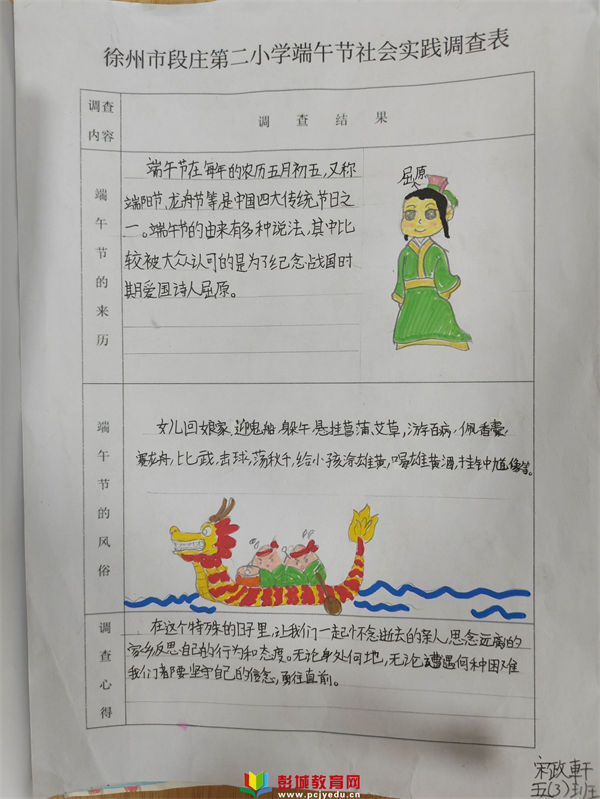 徐州市段庄第二小学端午节社会实践调查表
调查
内容
调查结果
端午节的来历
端午节在每年的农历五月初五,又称
端阳节、龙舟节等是中国四大传统节日之
一。端午节的由来有多种说法,其中比
较被大众认可的是为了纪念战国时
期爱国诗人屈原。
屈原
端午节的风俗
女儿回娘家、迎鬼船、躲午、悬挂菖蒲、艾草,游百病,佩香囊,
赛龙舟,比武,击球,荡秋千,给小孩涂雄黄,喝雄黄酒,挂钟馗像等。
调查心得
在这个特殊的日子里,让我们一起怀念逝去的亲人,思念远离的
家乡反思自己的行为和态度。无论身处何地,无论遭遇何种困难
我们都要坚守自己的信念,勇往直前。
宋政軒
五(3)班
彭城教育网
www.pcjyedu.cn